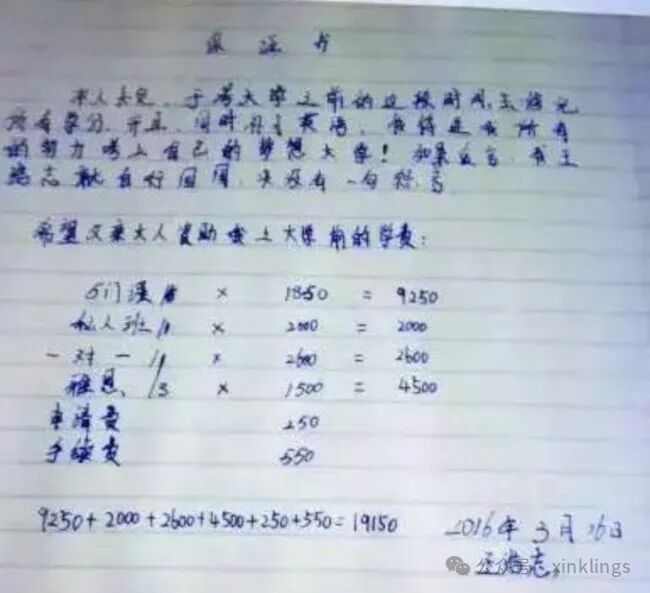 保证书
本人未完，于考大学之前的这段时间去修完
所有学分，并且，同时补习英语，我将尽我所有
的努力考上自己的梦想大学！如果食言，我王
浩志就自行回国，决没有一句怨言
希望父亲大人资助我上大学前的学费：
5门课 × 1850 = 9250
私人班/1 × 2000 = 2000
一对一/1 × 2600 = 2600
雅思、/3 × 1500 = 4500
申请费 250
手续费 550
9250+2000+2600+4500+250+550=19150
2016年3月26日
王浩志
公众号 xinklings